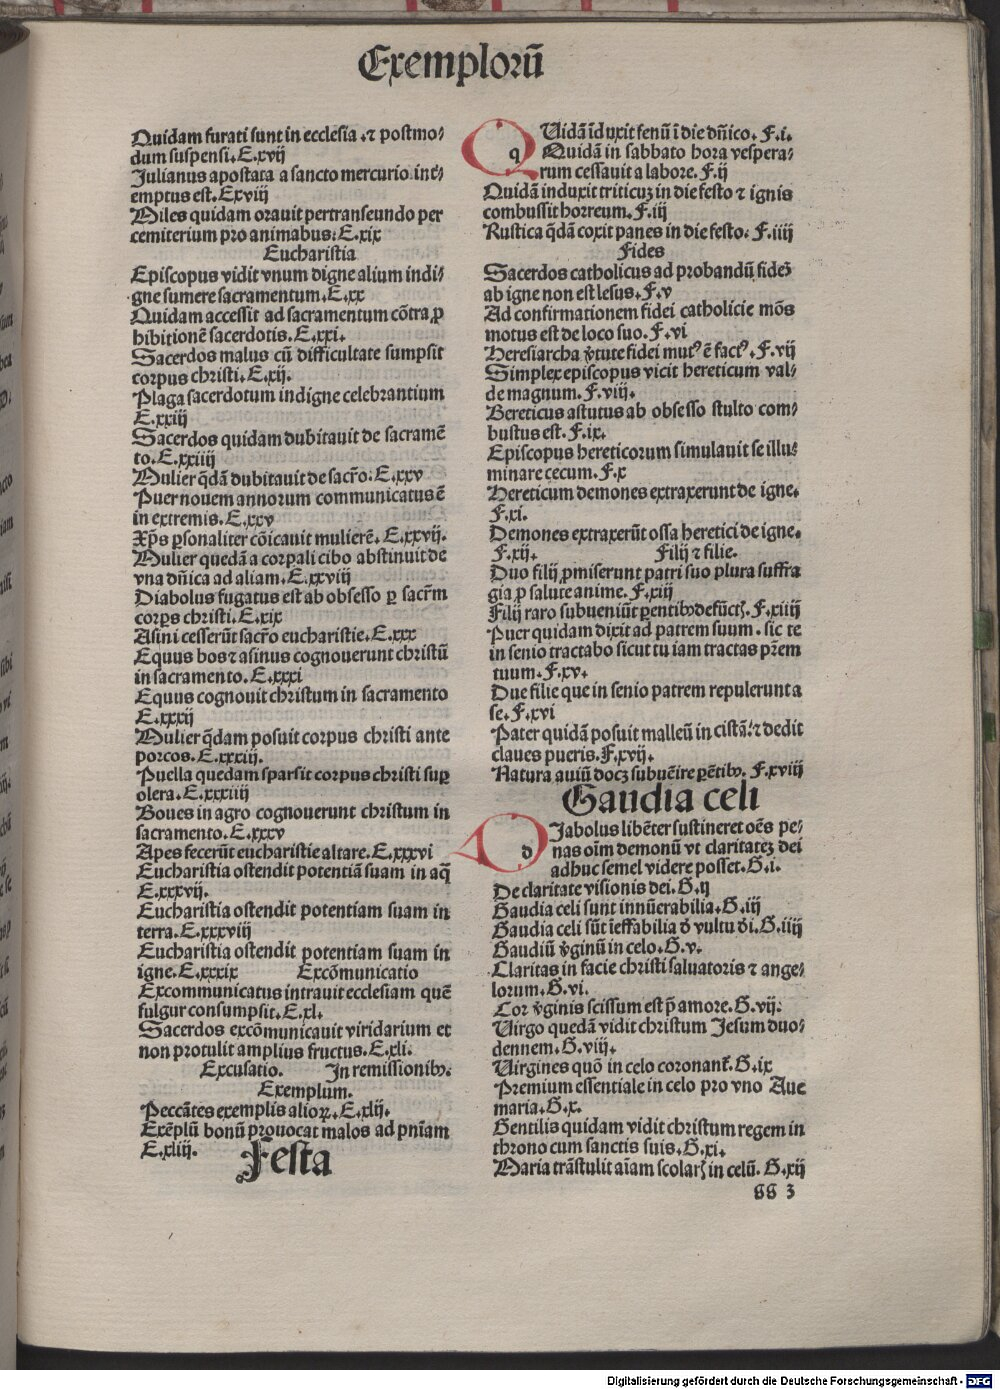 Exemplorū
Quidam furati sunt in ecclesia .⁊ postmo⸗
dum suspensi.E.xvij
Julianus apostata a sancto mercurio intē⸗
emptus est.E.xviij
Miles quidam orauit pertranseundo per
cemiterium pro animabus.E.xix
Eucharistia
Episcopus vidit vnum digne alium indi⸗
gne sumere sacramentum.E.xx
Quidam accessit ad sacramentum cōtra ꝓ
hibitionē sacerdotis.E.xxi.
Sacerdos malus cū difficultate sumpsit
corpus christi.E.xij.
Plaga sacerdotum indigne celebrantium
E.xxiij
Sacerdos quidam dubitauit de sacramē
to.E.xxiiij
Mulier q̄dā dubitauit de sacr̄o.E.xxv
Puer nouem annorum communicatus ē
in extremis.E.xxv
Xp̄s ꝑsonaliter cōicauit mulierē.E.xxvij.
Mulier quedā a corpali cibo abstinuit de
vna dn̄ica ad aliam.E.xxviij
Diabolus fugatus est ab obsesso ꝑ sacr̄m
corpꝰs christi.E.xix
Asini cesserūt sacr̄o eucharistie.E.xxx
Equus bos ⁊ asinus cognouerunt christū
in sacramento.E.xxxi
Equus cognouit christum in sacramento
E.xxxij
Mulier q̄dam posuit corpus christi ante
porcos.E.xxxiij.
Puella quedam sparsit corpus christi suꝑ
olera.E.xxxiiij
Boues in agro cognouerunt christum in
sacramento.E.xxxv
Apes fecerūt eucharistie altare.E.xxxvi
Eucharistia ostendit potentiā suam in aq̄
E.xxxvij.
Eucharistia ostendit potentiam suam in
terra.E.xxxviij
Eucharistia ostendit potentiam suam in
igne.E.xxxix Excōmunicatio
Excommunicatus intrauit ecclesiam quē
fulgur consumpsit.E.xl.
Sacerdos excōmunicauit viridarium et
non protulit amplius fructus.E.xli.
Excusatio. In remissionibꝰ.
Exemplum.
Peccātes exemplis alioꝝ.E.xlij.
Exēplū bonū prouocat malos ad pniam
E.xliij.
Festa
QUidā īduxit fenū ī die dn̄ico. F.i.
q Quidā in sabbato hora vespera⸗
rum cessauit a labore. F.ij
Quidā induxit triticuꝫ in die festo ⁊ ignis
combussit horreum. F.iij
Rustica q̄dā coxit panes in die festo. F.iiij
Fides
Sacerdos catholicus ad probandū fidē
ab igne non est lesus.F.v
Ad confirmationem fidei catholicie mōs
motus est de loco suo. F.vi
Heresiarcha v̄tute fidei mutꝰ ē factꝰ.F.vij
Simplex episcopus vicit hereticum val⸗
de magnum. F.viij.
Hereticus astutus ab obsesso stulto com⸗
bustus est. F.ix.
Episcopus hereticorum simulauit se illu⸗
minare cecum. F.x
Hereticum demones extraxerunt de igne.
F.xi.
Demones extraxerūt ossa heretici de igne.
F.xij. Filij ⁊ filie.
Duo filij ꝓmiserunt patri suo plura suffra
gia ꝓ salute anime. F.xiij
Filij raro subueniūt parentibꝰ defūctꝭ. F.xiiij
Puer quidam dixit ad patrem suum . sic te
in senio tractabo sicut tu iam tractas pr̄em
tuum.F.xv.
Due filie que in senio patrem repulerunt a
se.F.xvi
Pater quidā posuit malleū in cistā: ⁊ dedit
claues pueris.F.xvij.
Natura auiū docꝫ subuēire pētibꝰ. F.xviij
Gaudia celi
DJabolus libēter sustineret oēs pe⸗
d nas oīm demonū vt claritateꝫ dei
adhuc semel videre posset.G.i.
De claritate visionis dei.G.ij
Gaudia celi sunt innūerabilia.G.iij
Gaudia celi sūt ieffabilia d̄ vultu d̄i.G.iiij
Gaudiū v̄ginū in celo.G.v.
Claritas in facie christi saluatoris ⁊ ange⸗
lorum.G.vi.
Cor v̄ginis scissum est p̄ amore.G.vij.
Virgo quedā vidit christum Jesum duo⸗
dennem.G.viij.
Virgines quō in celo coronant᷑.G.ix
Premium essentiale in celo pro vno Aue
maria.G.x.
Gentilis quidam vidit christum regem in
throno cum sanctis suis.G.xi.
Maria trāstulit aīam scolarꝭ in celū. G.xij
gg 3
Digitalisierung gefördert durch die Deutsche Forschungsgemeinschaft - DFG